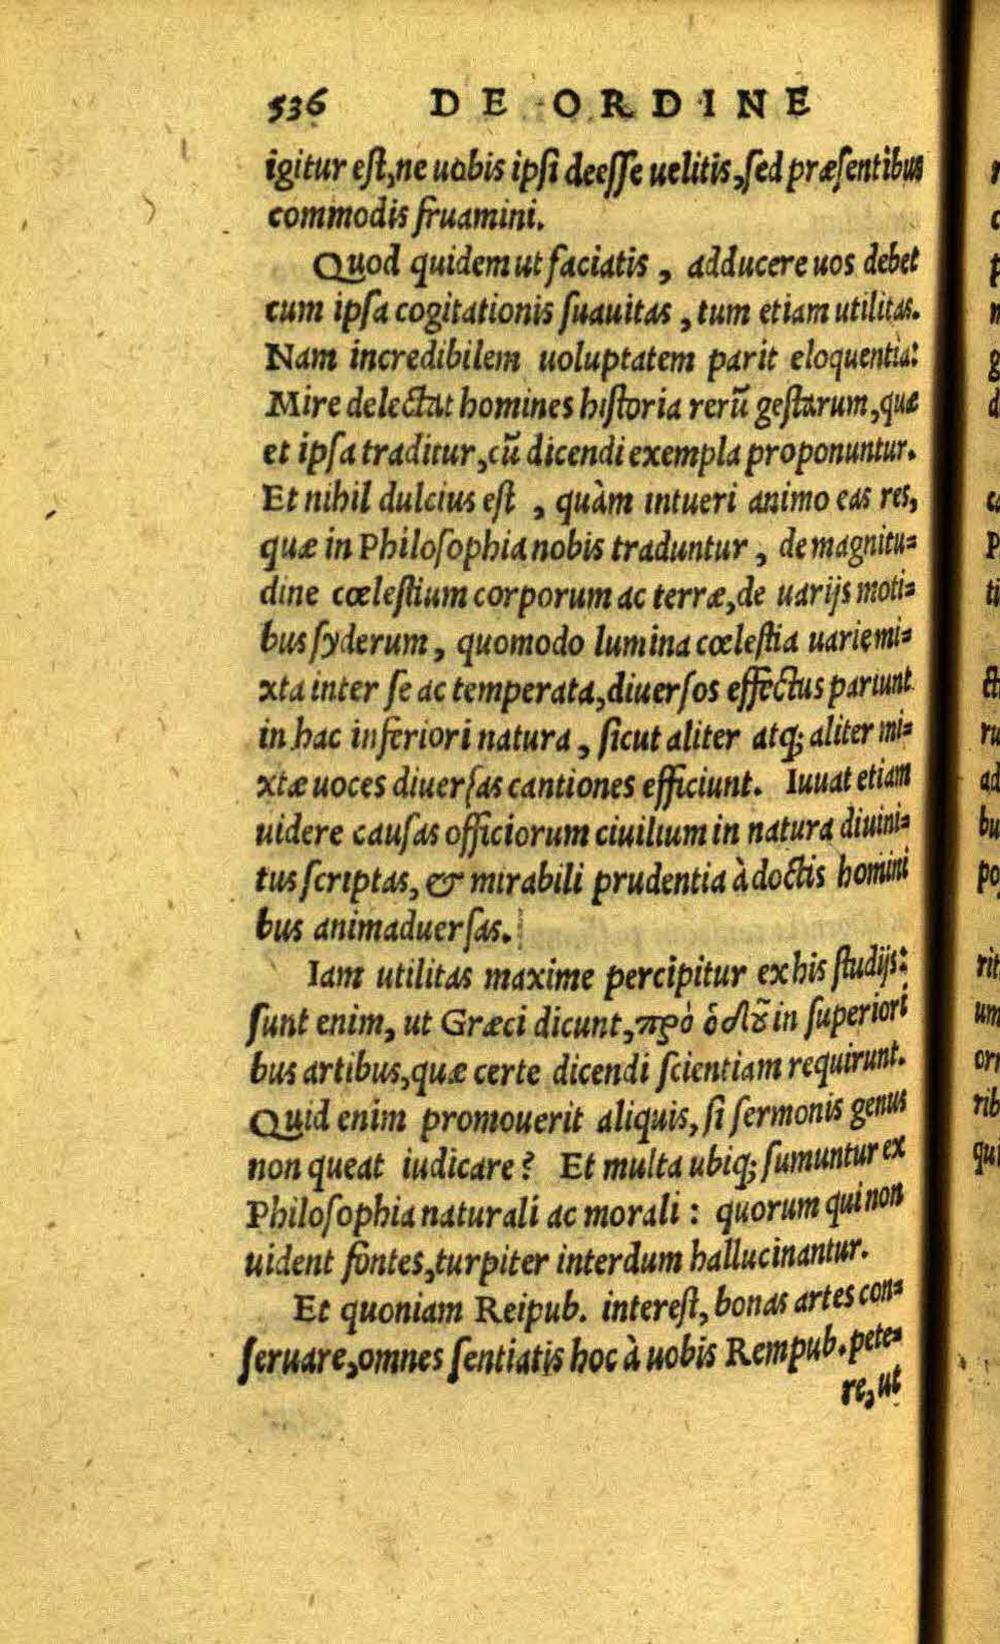 536 DE ORDINE
igitur eſt, ne uobis ipſi deeſſe uelitis, ſed præſentibus
commodis fruamini.
Quod quidem ut faciatis, adducere uos debet
cum ipſa cogitationis ſuauitas, tum etiam utilitas.
Nam incredibilem uoluptatem parit eloquentia:
Mire delectat homines hiſtoria rerū geſtarum, quæ
et ipſa traditur, cū dicendi exempla proponuntur.
Et nihil dulcius eſt, quàm intueri animo eas res,
quæ in Philoſophia nobis traduntur, de magnitu=
dine cœleſtium corporum ac terræ, de uarijs moti=
bus ſyderum, quomodo lumina cœleſtia uarie mi=
xta inter ſe ac temperata, diuerſos effectus pariunt
in hac inferiori natura, ſicut aliter atq; aliter mi=
xtæ uoces diuerſas cantiones efficiunt. Iuuat etiam
uidere cauſas officiorum ciuilium in natura diuini=
tus ſcriptas, & mirabili prudentia à doctis homini
bus animaduerſas.
Iam utilitas maxime percipitur ex his ſtudijs:
ſunt enim, ut Græci dicunt, πρὸ ὁδοῦ in ſuperiori
bus artibus, quæ certe dicendi ſcientiam requirunt.
Quid enim promouerit aliquis, ſi ſermonis genus
non queat iudicare? Et multa ubiq; ſumuntur ex
Philoſophia naturali ac morali: quorum qui non
uident fontes, turpiter interdum hallucinantur.
Et quoniam Reipub. intereſt, bonas artes con=
ſeruare, omnes ſentiatis hoc à uobis Rempub. pete=
re, ut